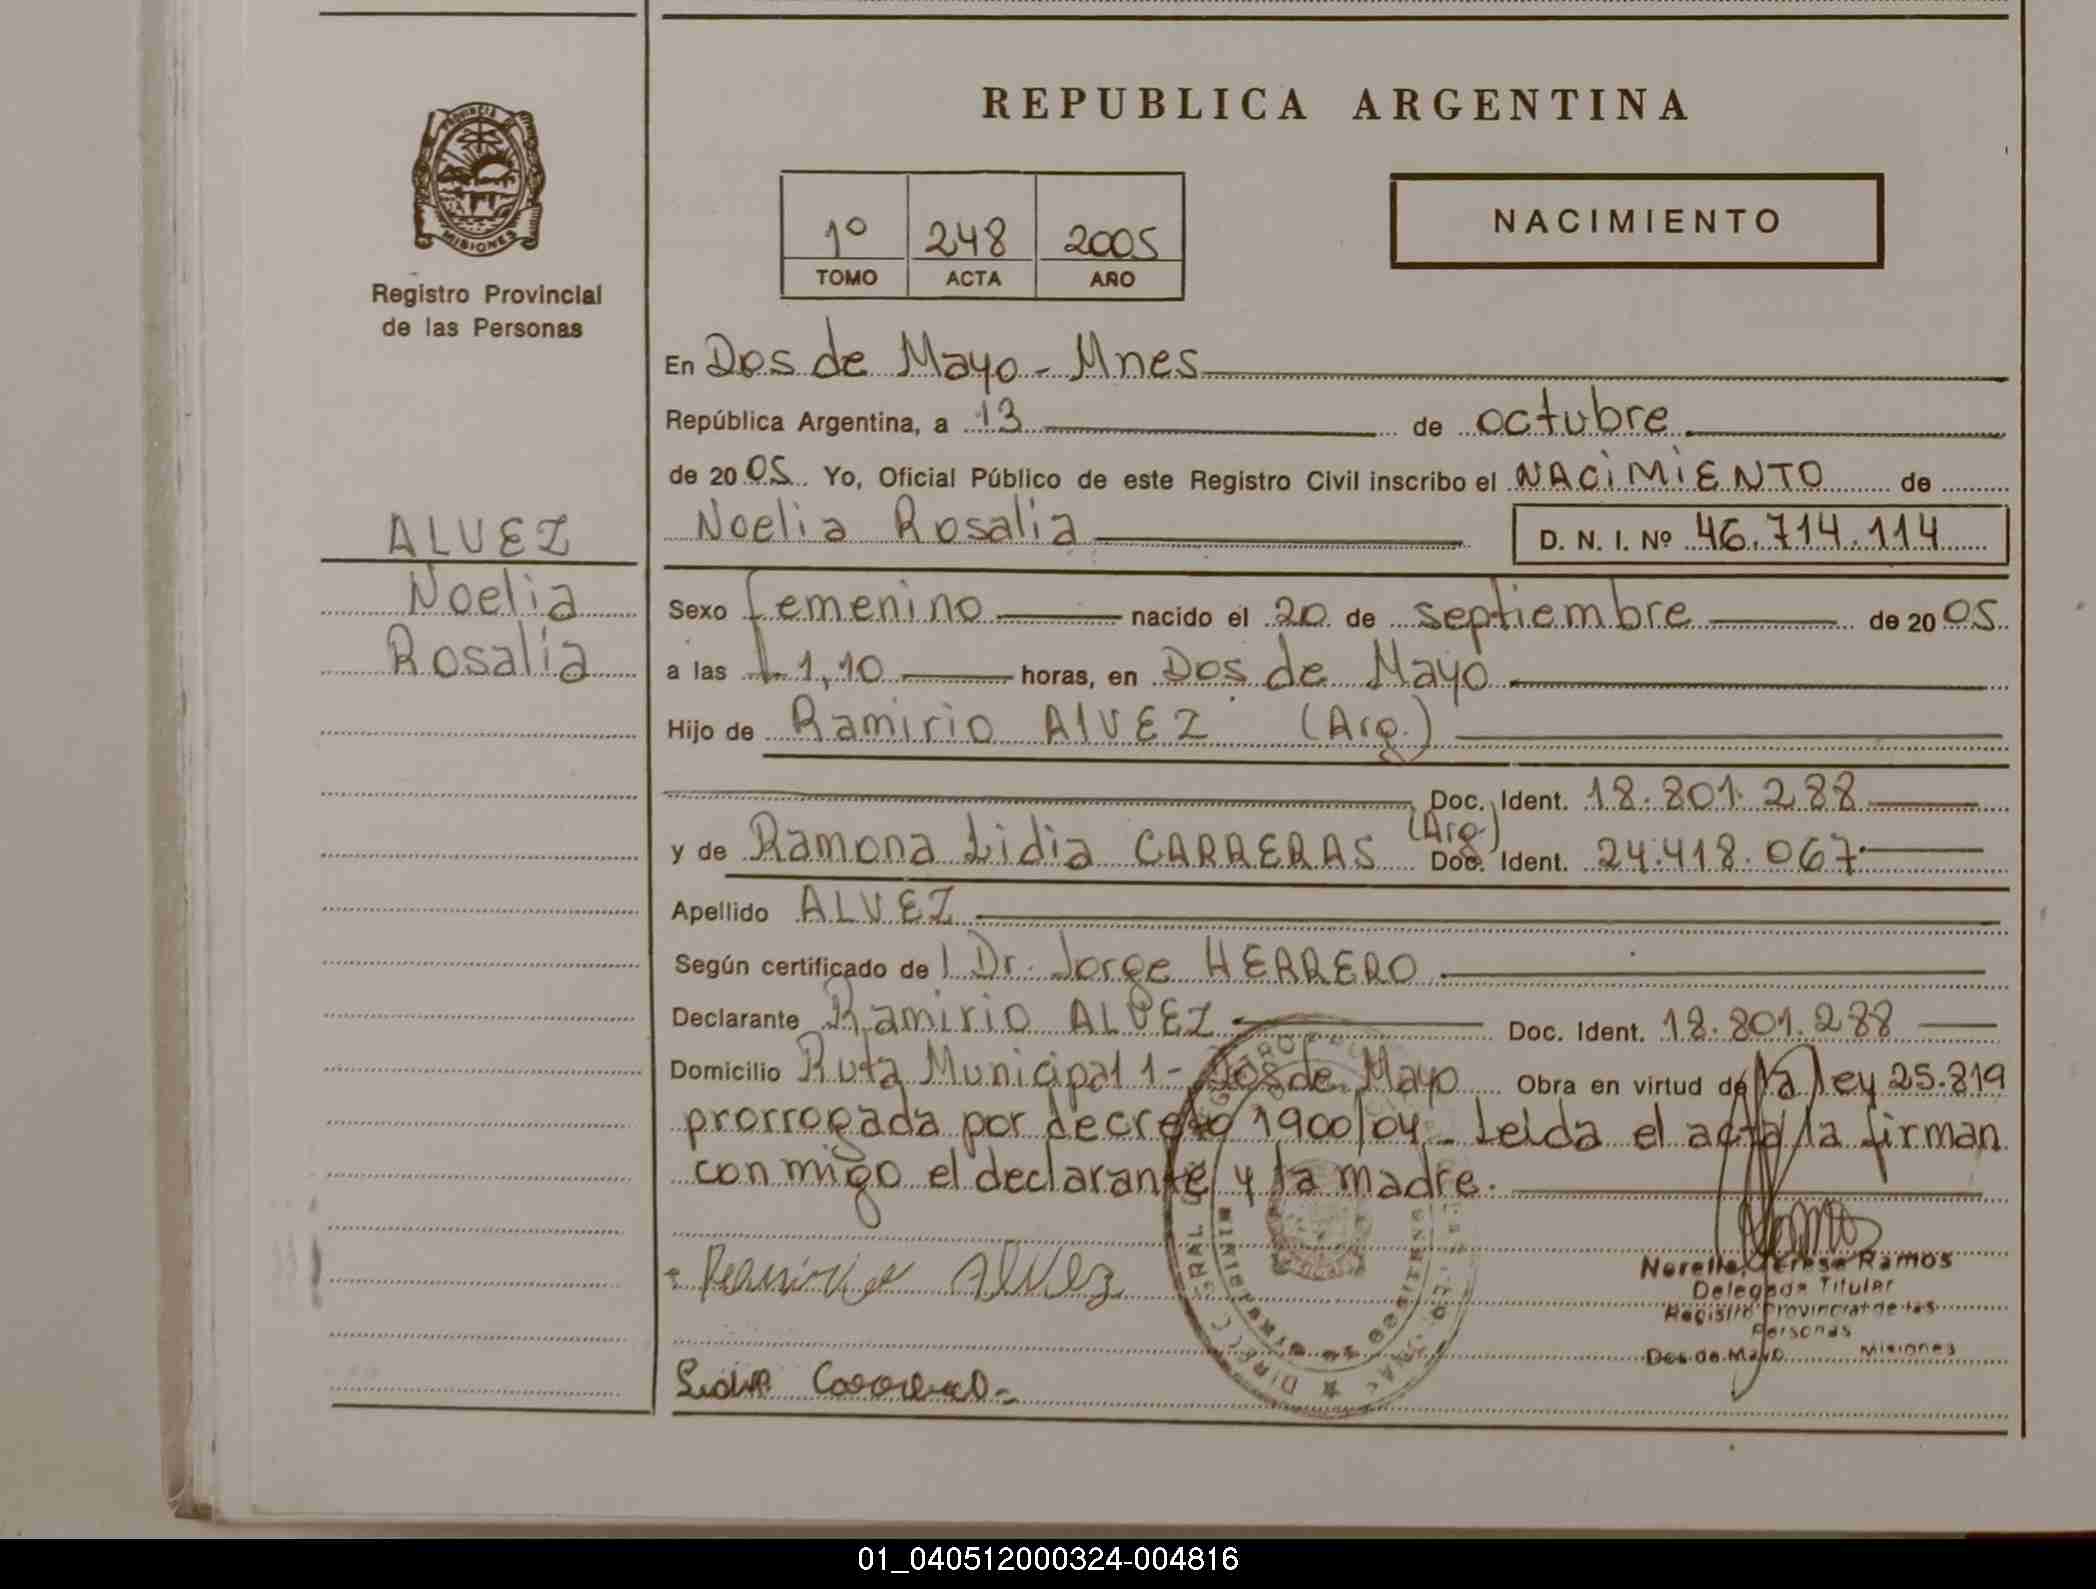 REPUBLICA ARGENTINA
PROVINCIA D
MISIONES
Registro Provincial
de las Personas
1º 248 2005
TOMO ACTA AÑO
NACIMIENTO
En Dos de Mayo - Mnes
República Argentina, a 13 de octubre
de 2005 Yo, Oficial Público de este Registro Civil inscribo el NACIMIENTO de
ALVEZ
Noelia
Rosalia
Noelia Rosalia D. N. I. Nº 46.714.114
Sexo femenino nacido el 20 de septiembre de 2005
a las 1,10 horas, en Dos de Mayo
Hijo de Ramirio AlVEZ (Arg.)
Doc. Ident. 18.801.288
y de Ramona Lidia CARRERAS (Arg.) Doc. Ident. 24.418.067
Apellido ALVEZ
Según certificado de Dr. Jorge HERRERO
Declarante Ramirio ALVEZ Doc. Ident. 18.801.288
Domicilio Ruta Municipal 1 - Dos de Mayo Obra en virtud de la ley 25.819
prorrogada por decreto 1900/04 - Leida el acta la firman
con migo el declarante y la madre.
Ramirio Alvez
Ramos
Delegada Titular
Registro Provincial de las
Personas
Dos de Mayo Misiones
01_040512000324-004816